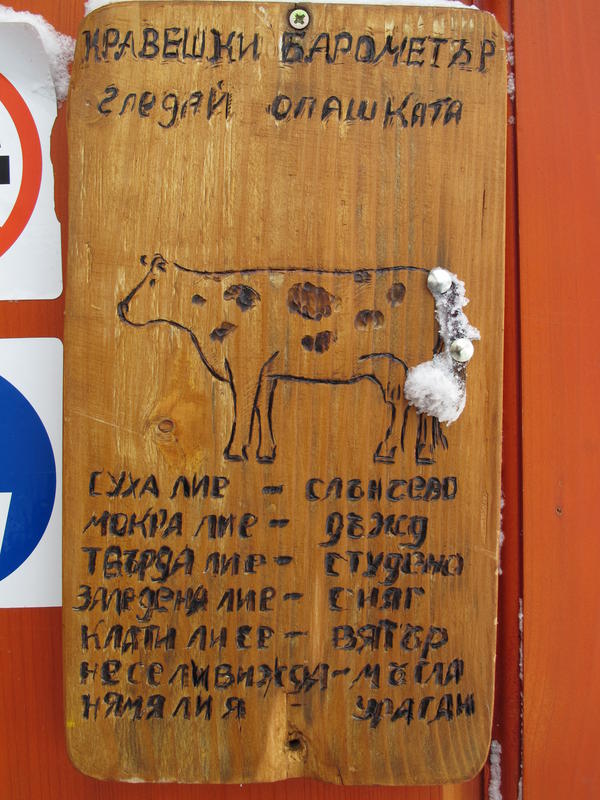 КРАВЕШКИ БАРОМЕТЪР
гледай опашката
СУХА ЛИ Е - СЛЪНЧЕВО
МОКРА ЛИ Е - ДЪЖД
ТВЪРДА ЛИ Е - СТУДЕНО
ЗАЛЕДЕНА ЛИ Е - СНЯГ
КЛАТИ ЛИ СЕ - ВЯТЪР
НЕ СЕ ЛИ ВИЖДА - МЪГЛА
НЯМА ЛИ Я - УРАГАН